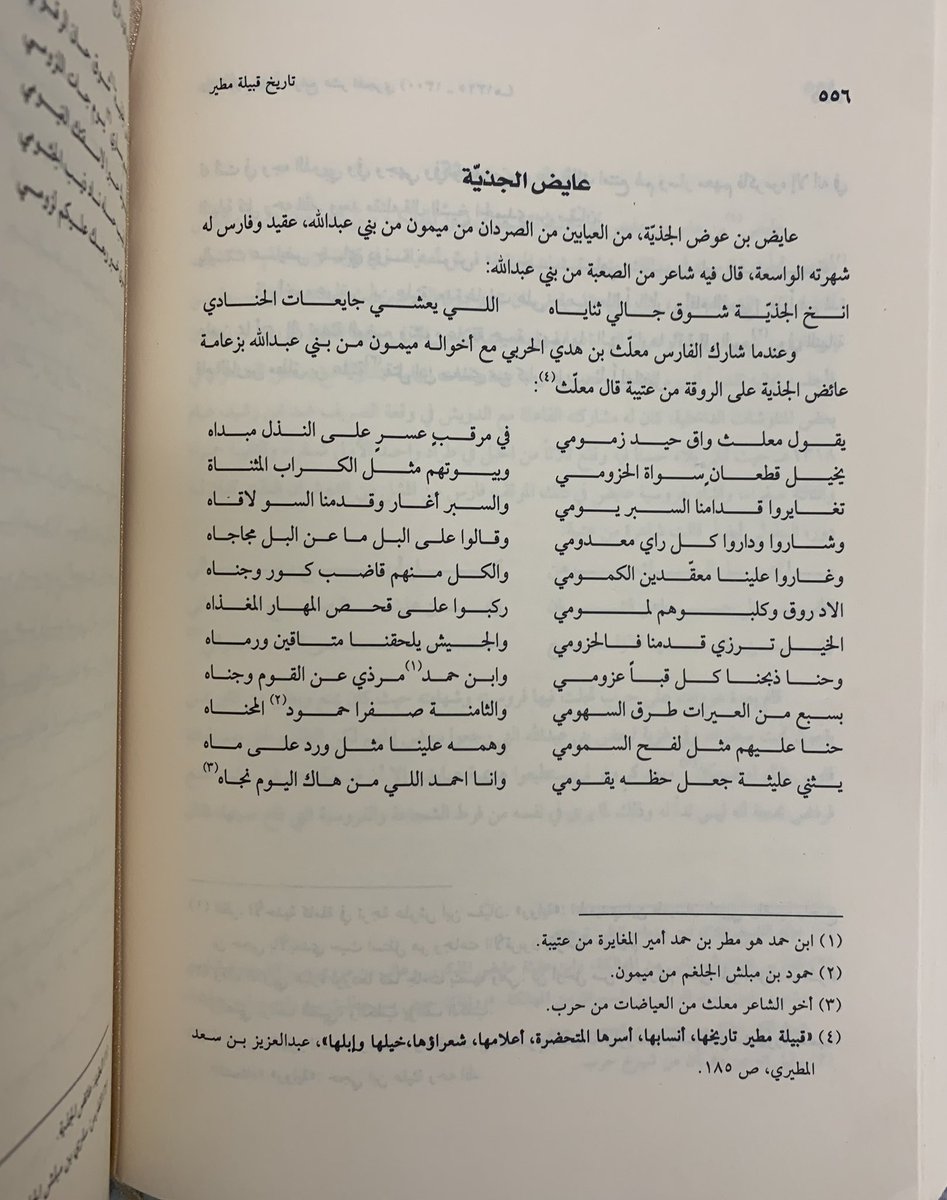 ٥٥٦
تاريخ قبيلة مطير
عايض الجذيّة
عايض بن عوض الجذيّة، من العيابين من الصردان من ميمون من بني عبدالله، عقيد وفارس له
شهرته الواسعة، قال فيه شاعر من الصعبة من بني عبدالله:
انخ الجذيّة شوق جالي ثناياه اللي يعشي جايعات الحنادي
وعندما شارك الفارس معلّث بن هدي الحربي مع أخواله ميمون من بني عبدالله بزعامة
عائض الجذية على الروقة من عتيبة قال معلّث(٤):
يقول معلث واق حيد زمومي في مرقبٍ عسرٍ على النذل مبداه
يخيل قطعانٍ سواة الحزومي وبيوتهم مثل الكراب المثناة
تغايروا قدامنا السبر يومي والسبر أغار وقدمنا السو لاقاه
وشاروا وداروا كل راي معدومي وقالوا على البل ما عن البل مجاجاه
وغاروا علينا معقّدين الكمومي والكل منهم قاضب كور وجناه
الاد روق وكلبوهم لمومي ركبوا على قحص المهار المغذاه
الخيل ترزي قدمنا فالحزومي والجيش يلحقنا متاقين ورماه
وحنا ذبحنا كل قباً عزومي وابن حمد(١) مرذي عن القوم وجناه
بسبع من العيرات طرق السهومي والثامنة صفرا حمود(٢) المحناه
حنا عليهم مثل لفح السمومي وهمه علينا مثل ورد على ماه
يثني عليثة جعل حظه يقومي وانا احمد اللي من هاك اليوم نجاه(٣)
(١) ابن حمد هو مطر بن حمد أمير المغايرة من عتيبة.
(٢) حمود بن مبلش الجلغم من ميمون.
(٣) أخو الشاعر معلث من العياضات من حرب.
(٤) «قبيلة مطير تاريخها، أنسابها، أسرها المتحضرة، أعلامها، شعراؤها،خيلها وإبلها»، عبدالعزيز بن سعد
المطيري، ص ١٨٥.